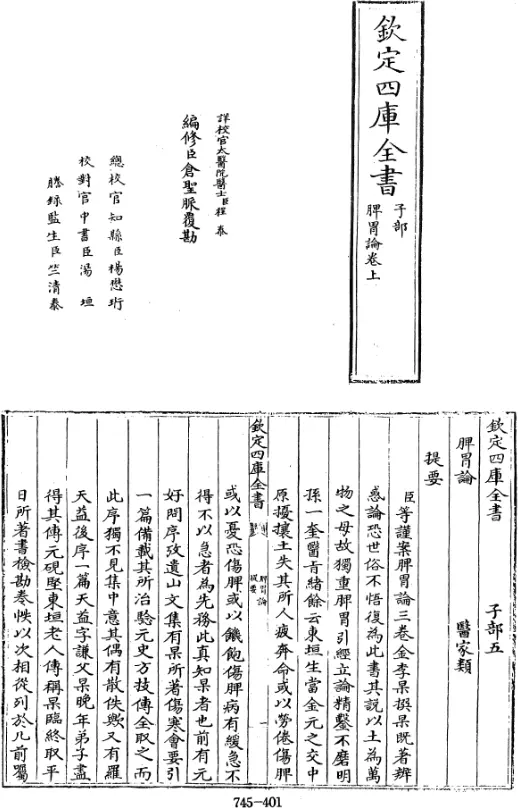 欽定四庫全書
子部
脾胃論卷上
詳校官太醫院醫士臣程泰
編修臣倉聖脈覆勘
總校官知縣臣楊懋珩
校對官中書臣湯垣
謄錄監生臣竺清泰
欽定四庫全書 子部五
脾胃論 醫家類
提要
臣等謹案脾胃論三卷金李杲撰杲既著辨
惑論恐世俗不悟復為此書其說以土為萬
物之母故獨重脾胃引經立論精鑿不磨明
孫一奎醫旨緒餘云東垣生當金元之交中
原擾攘士失其所人疲奔命或以勞倦傷脾
欽定四庫全書
脾胃論
提要
一
或以憂恐傷脾或以饑飽傷脾病有緩急不
得不以急者為先務此真知杲者也前有元
好問序攷遺山文集有杲所著傷寒會要引
一篇備載其所治驗元史方技傳全取之而
此序獨不見集中意其偶有散佚歟又有羅
天益後序一篇天益字謙父杲晚年弟子盡
得其傳元硯堅東垣老人傳稱杲臨終取平
日所著書檢勘卷帙以次相從列於几前囑
745-401